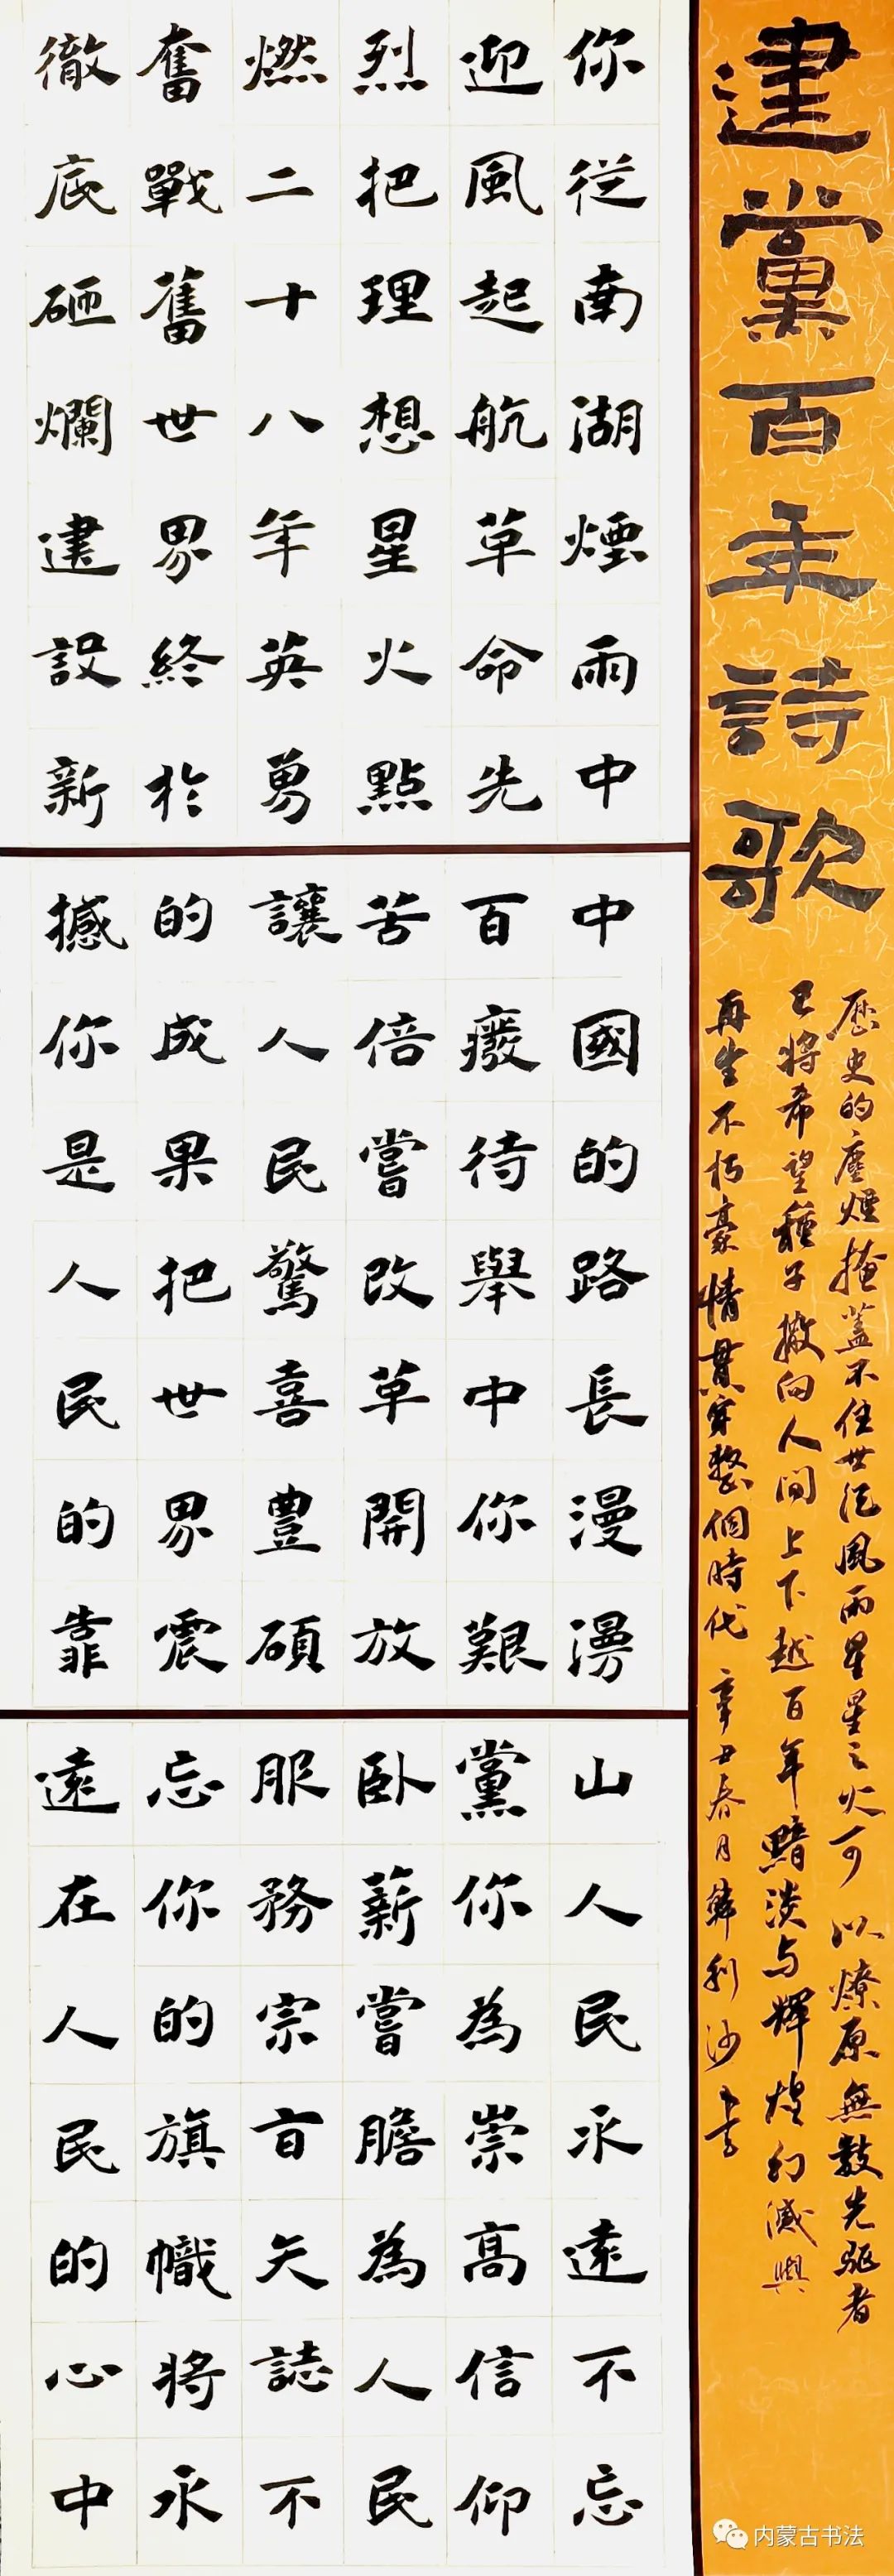 建黨百年詩歌
歷史的塵煙掩蓋不住世紀風雨星星之火可以燎原無數先驅者
已將希望種子撒向人間上下越百年黯淡与輝煌幻滅與
再生不朽豪情貫穿整個時代 辛丑春月韓利沙書
你從南湖煙雨中
迎風起航革命先
烈把理想星火點
燃二十八年英勇
奮戰舊世界終於
徹底砸爛建設新
中國的路長漫漫
百廢待舉中你艱
苦倍嘗改革開放
讓人民驚喜豐碩
的成果把世界震
撼你是人民的靠
山人民永遠不忘
黨你為崇高信仰
卧薪嘗膽為人民
服務宗旨矢誌不
忘你的旗幟將永
遠在人民的心中
内蒙古书法